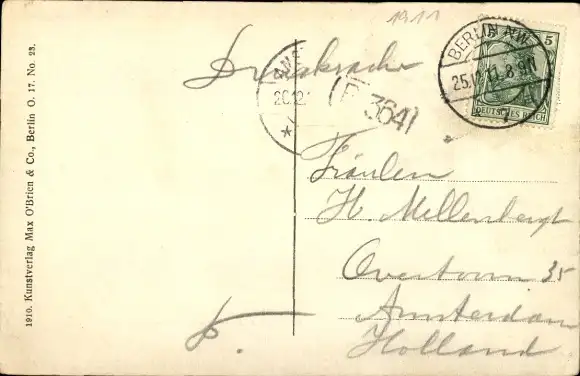 1911
Drucksache
BERLIN NW
25.12.11. 8-9N
* 7
5
DEUTSCHES REICH
26.12.
364
Fräulen
H. Mellenbergt
Overtoom 35
Amsterdam
Holland
1910. Kunstverlag Max O'Brien & Co., Berlin O. 17. No. 23.